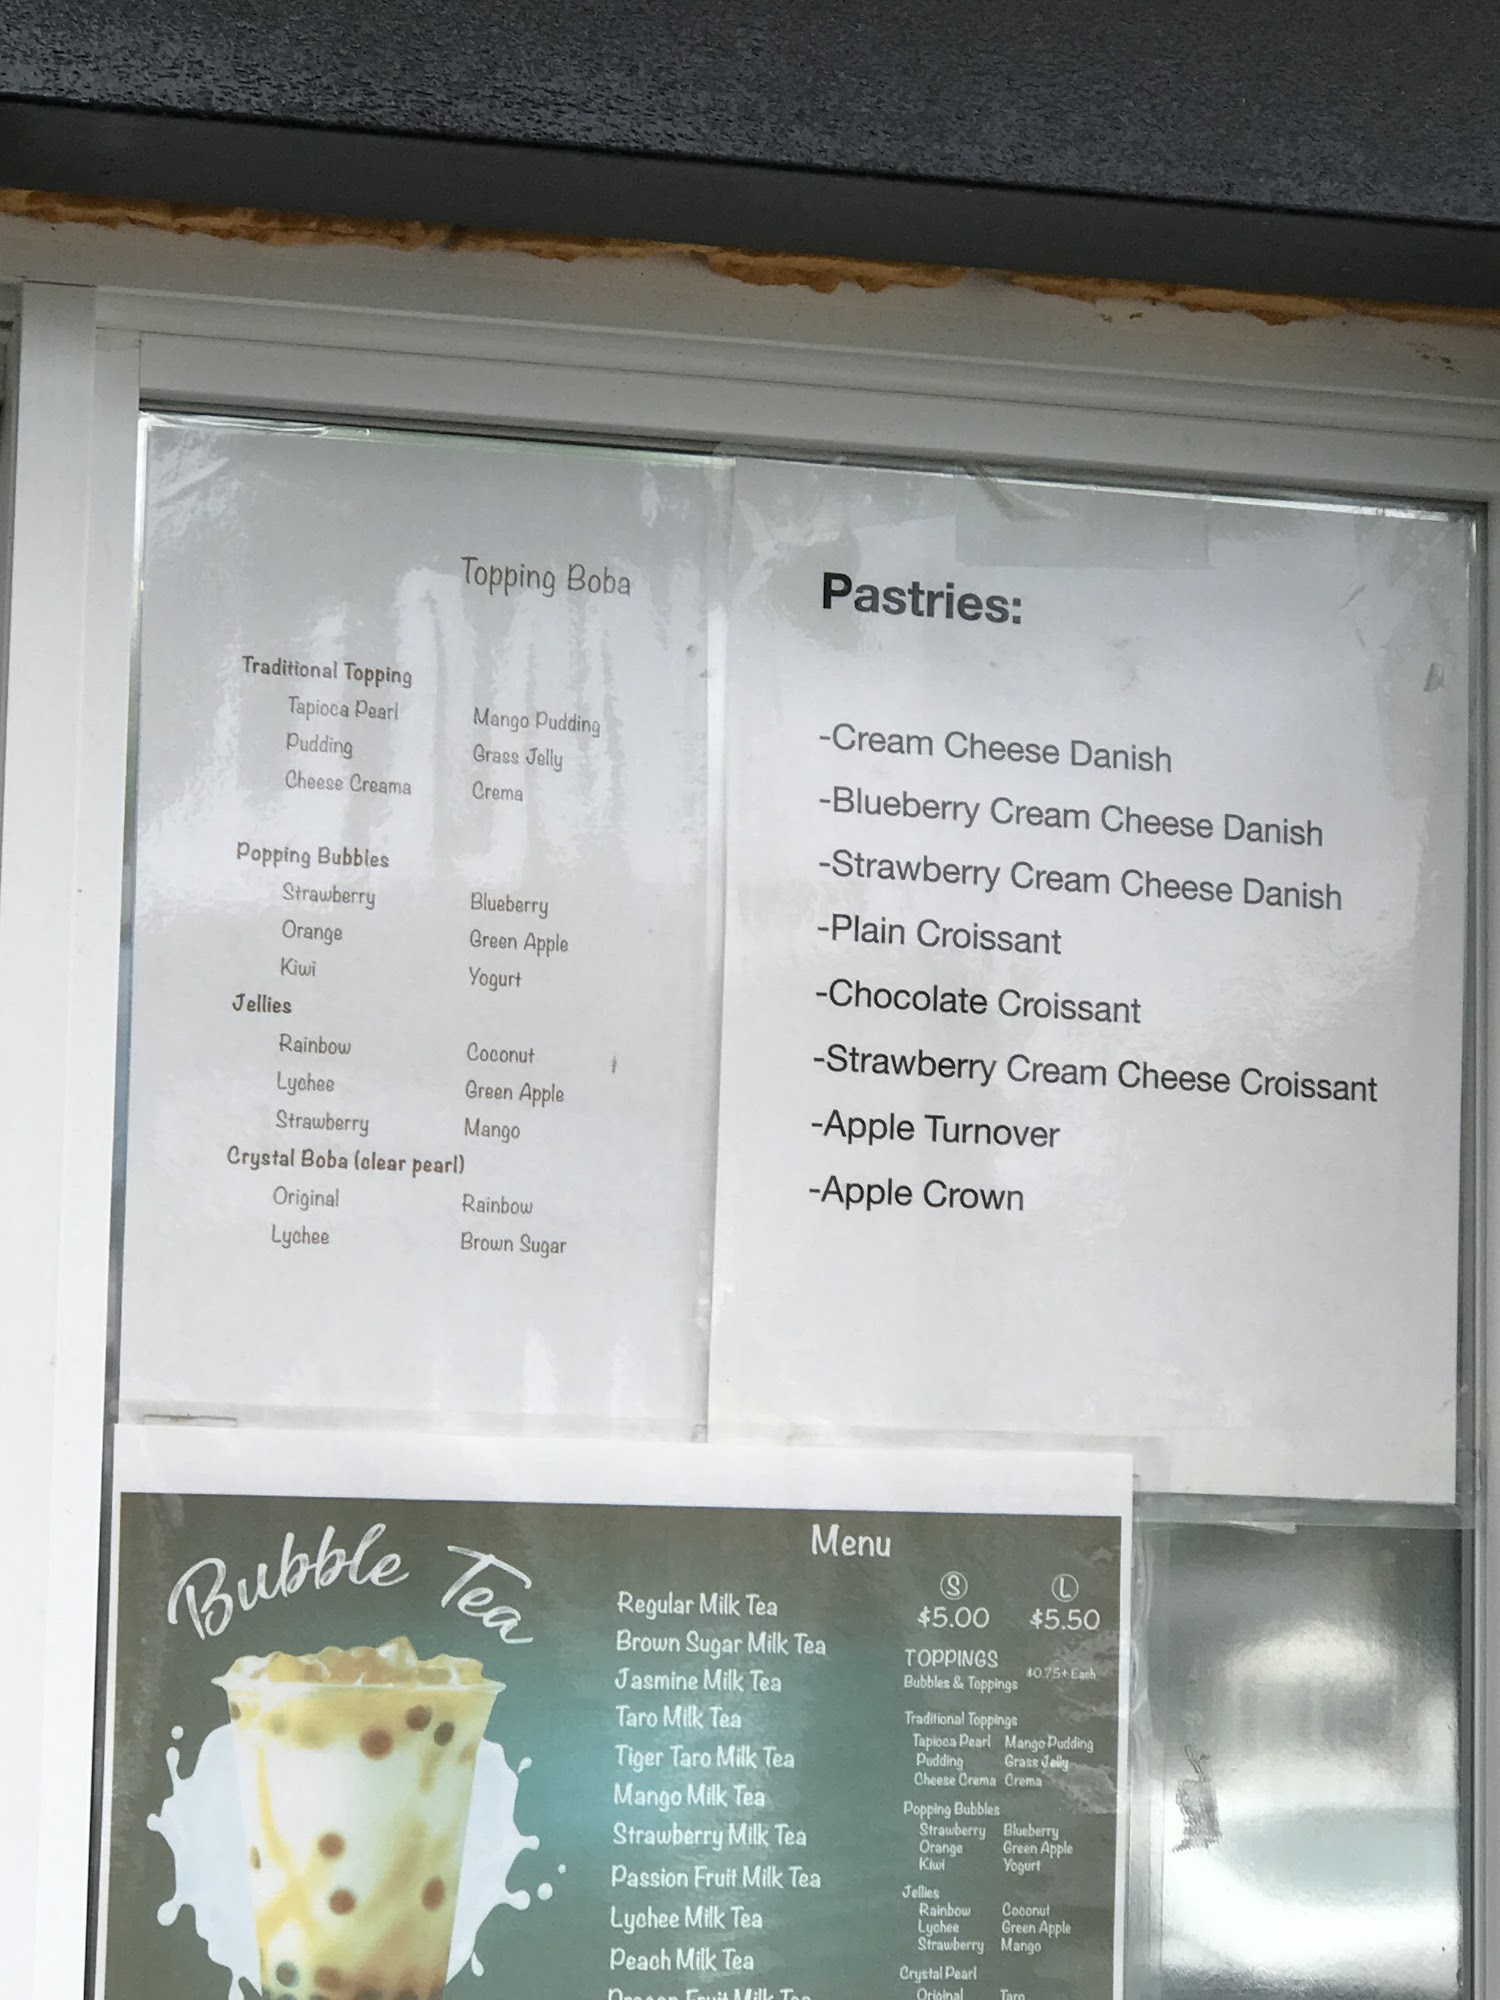 Topping Boba
Traditional Topping
Tapioca Pearl Mango Pudding
Pudding Grass Jelly
Cheese Creama Crema
Popping Bubbles
Strawberry Blueberry
Orange Green Apple
Kiwi Yogurt
Jellies
Rainbow Coconut
Lychee Green Apple
Strawberry Mango
Crystal Boba (clear pearl)
Original Rainbow
Lychee Brown Sugar
Pastries:
-Cream Cheese Danish
-Blueberry Cream Cheese Danish
-Strawberry Cream Cheese Danish
-Plain Croissant
-Chocolate Croissant
-Strawberry Cream Cheese Croissant
-Apple Turnover
-Apple Crown
Bubble Tea
Menu
Regular Milk Tea
Brown Sugar Milk Tea
Jasmine Milk Tea
Taro Milk Tea
Tiger Taro Milk Tea
Mango Milk Tea
Strawberry Milk Tea
Passion Fruit Milk Tea
Lychee Milk Tea
Peach Milk Tea
Dragon Fruit Milk Tea
S L
$5.00 $5.50
TOPPINGS
Bubbles & Toppings $0.75+ Each
Traditional Toppings
Tapioca Pearl Mango Pudding
Pudding Grass Jelly
Cheese Crema Crema
Popping Bubbles
Strawberry Blueberry
Orange Green Apple
Kiwi Yogurt
Jellies
Rainbow Coconut
Lychee Green Apple
Strawberry Mango
Crystal Pearl
Original Taro